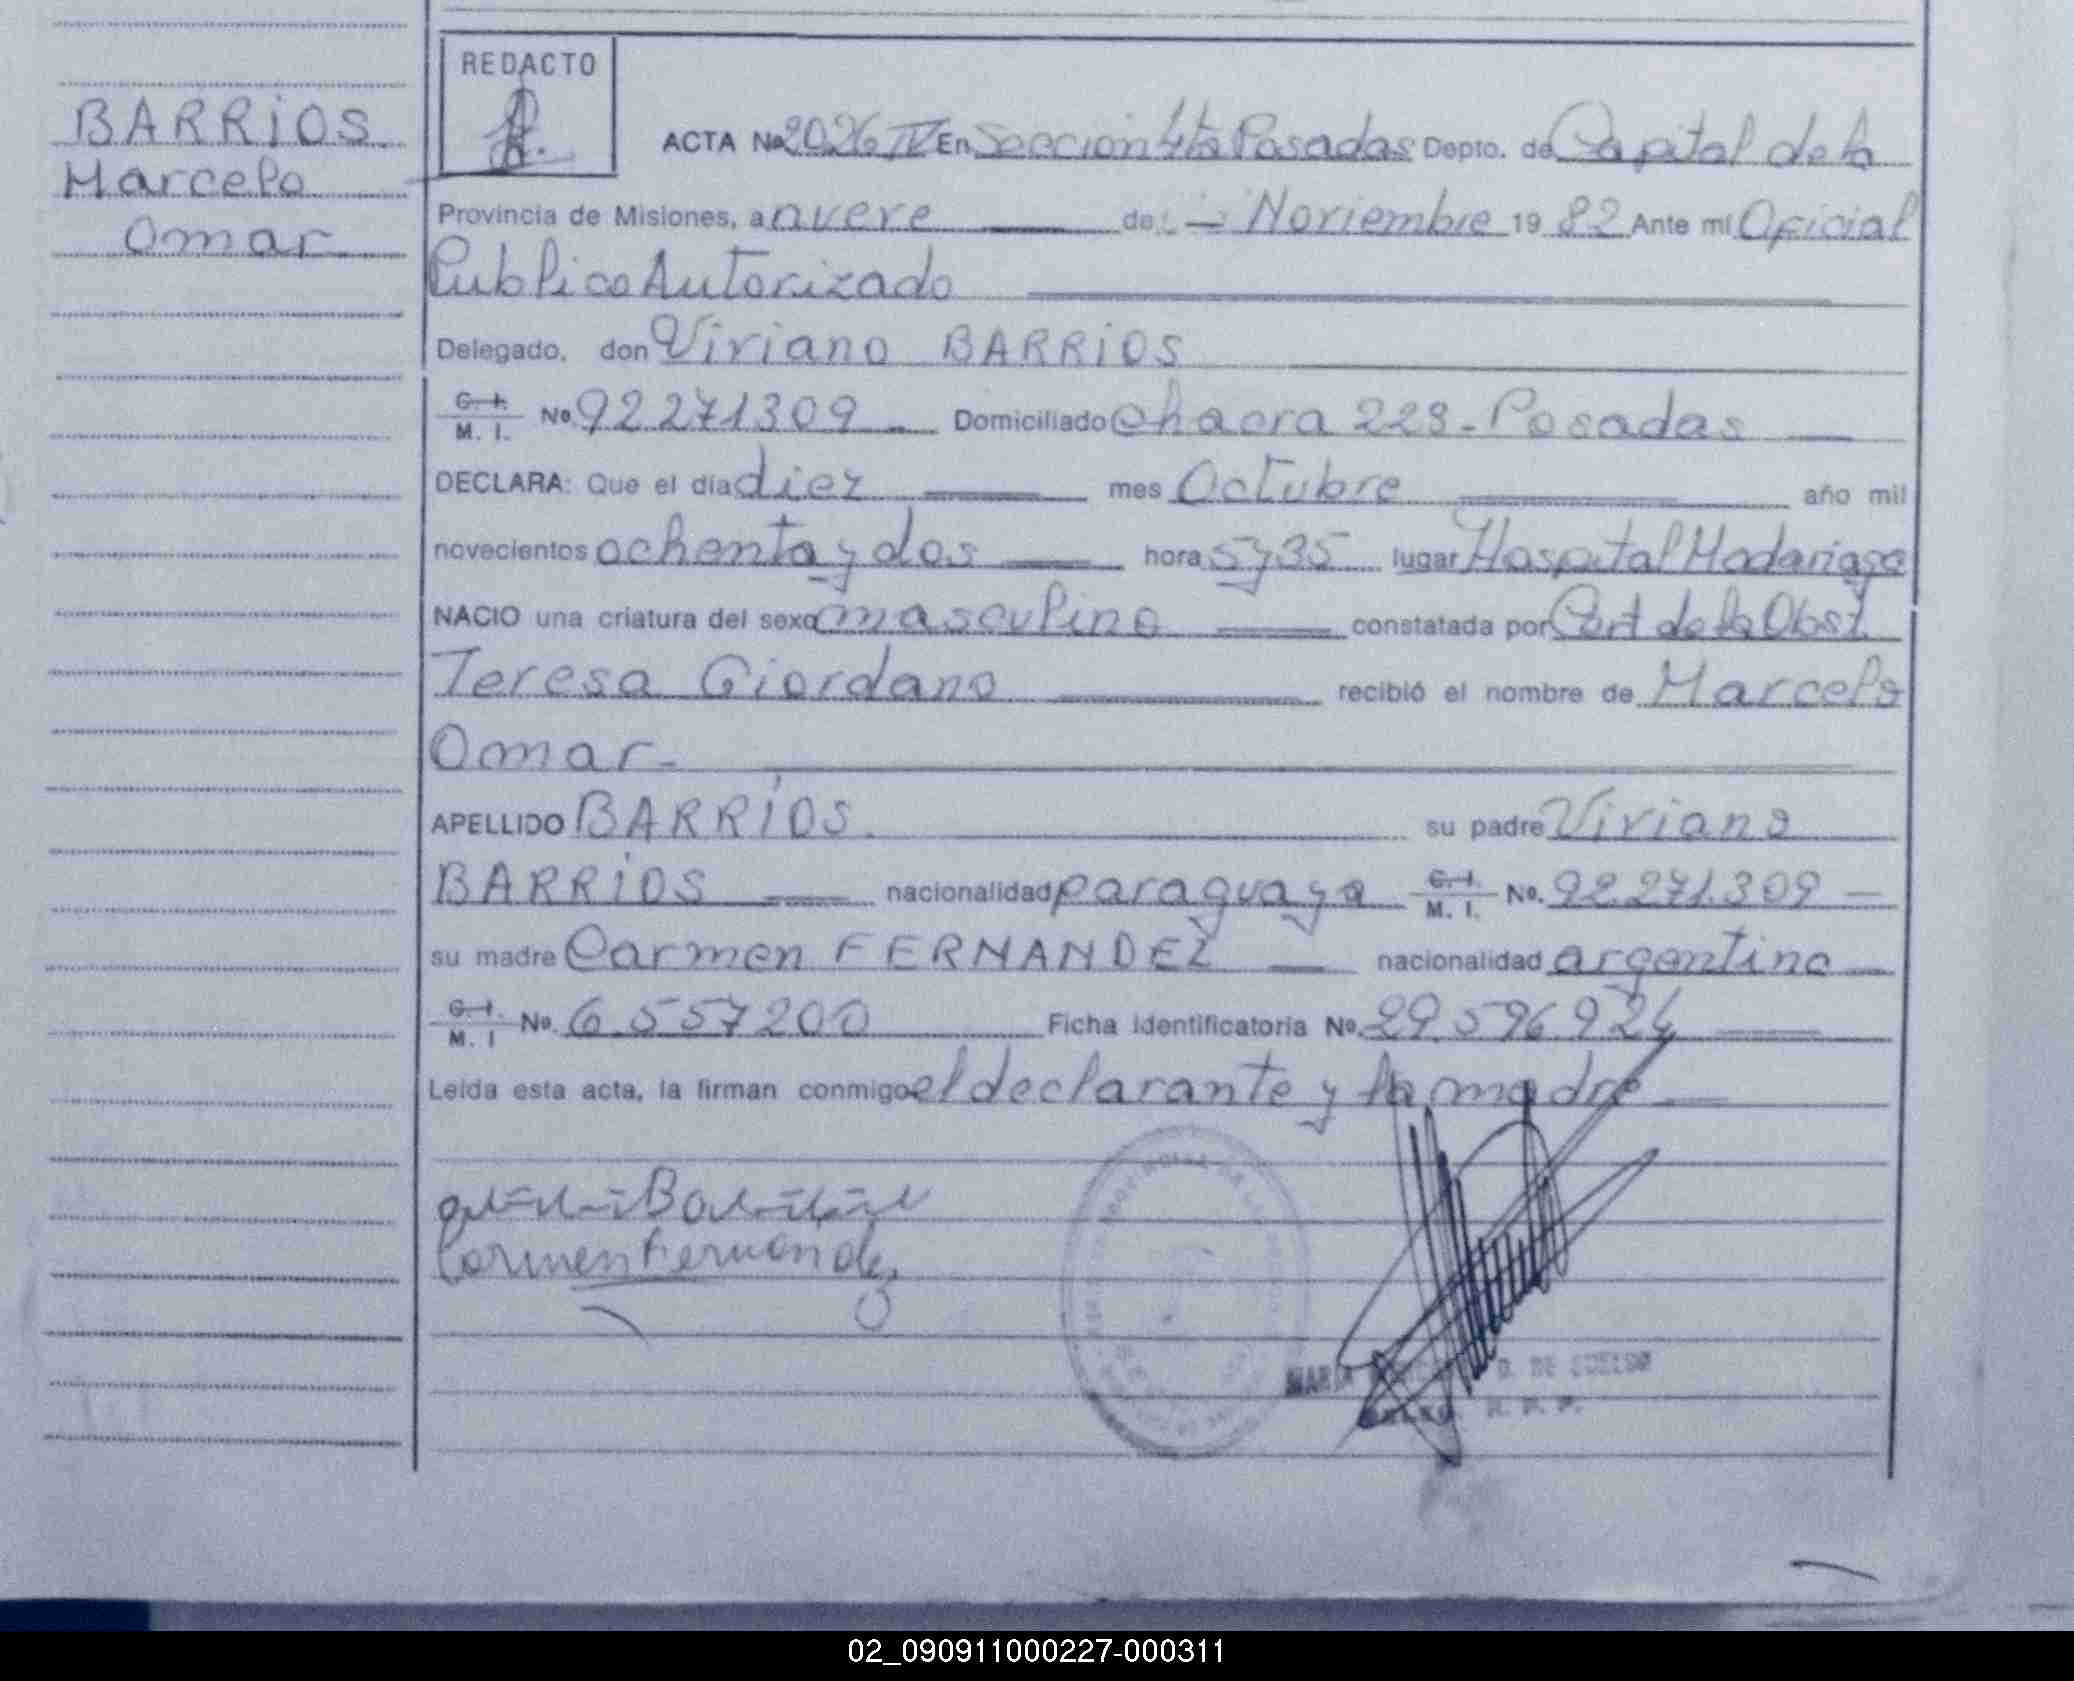 BARRIOS
Marcelo
Omar
REDACTO
ACTA No 2026 IV En Sección 4ta Posadas Depto. de Capital de la
Provincia de Misiones, a nueve de Noviembre 1982 Ante mí Oficial
Publico Autorizado
Delegado, don Viviano BARRIOS
C. I. M. I. No. 92271309 Domiciliado chacra 228 - Posadas
DECLARA: Que el día diez mes Octubre año mil
novecientos ochenta y dos hora 5 y 35 lugar Hospital Madariaga
NACIO una criatura del sexo masculino constatada por Cert de la Obst.
Teresa Giordano recibió el nombre de Marcelo
Omar -
APELLIDO BARRIOS. su padre Viviano
BARRIOS nacionalidad paraguaya C. I. M. I. No. 92.271.309 -
su madre Carmen FERNANDEZ nacionalidad argentina
C. I. M. I No. 6.557200 Ficha Identificatoria No. 29.596.924
Leída esta acta, la firman conmigo el declarante y la madre
Carmen Fernandez
MARIA D. DE SUELDO
R. P. P.
02_090911000227-000311